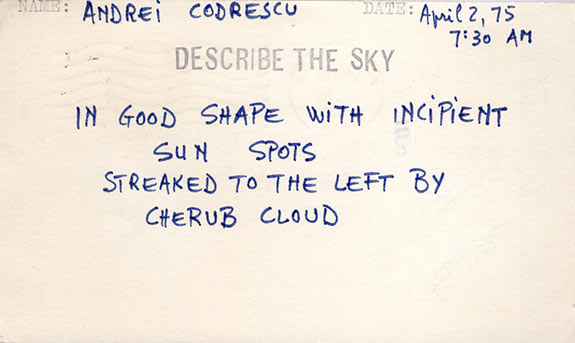 NAME: ANDREI CODRESCU DATE: April 2, 75
7:30 AM
DESCRIBE THE SKY
IN GOOD SHAPE WITH INCIPIENT
SUN SPOTS
STREAKED TO THE LEFT BY
CHERUB CLOUD